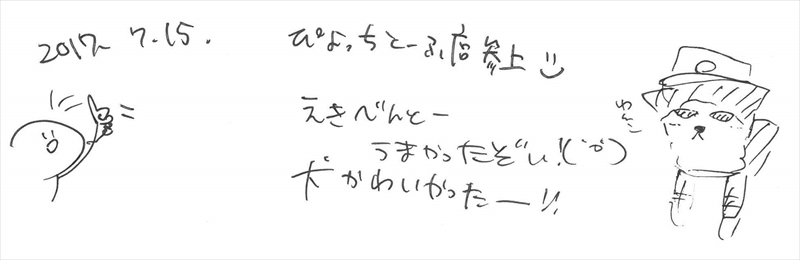 2017. 7.15.
ぴよっちとーふ店参上
えきべんとー
うまかったぞい!(˙o˙)
犬かわいかったー!!
わんこ